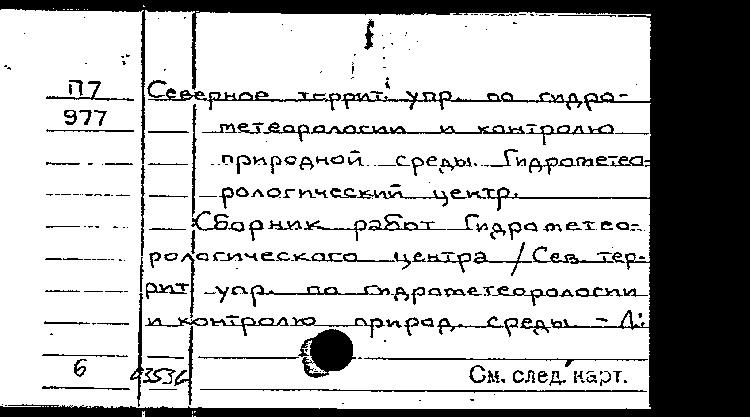 П7 Северное террит. упр. по гидро-
977 метеорологии и контролю
природной среды. Гидрометео-
рологический центр.
Сборник работ Гидрометео-
рологического центра / Сев. тер-
рит. упр. по гидрометеорологии
и контролю природ. среды. - Л.:
6 См. след. карт.